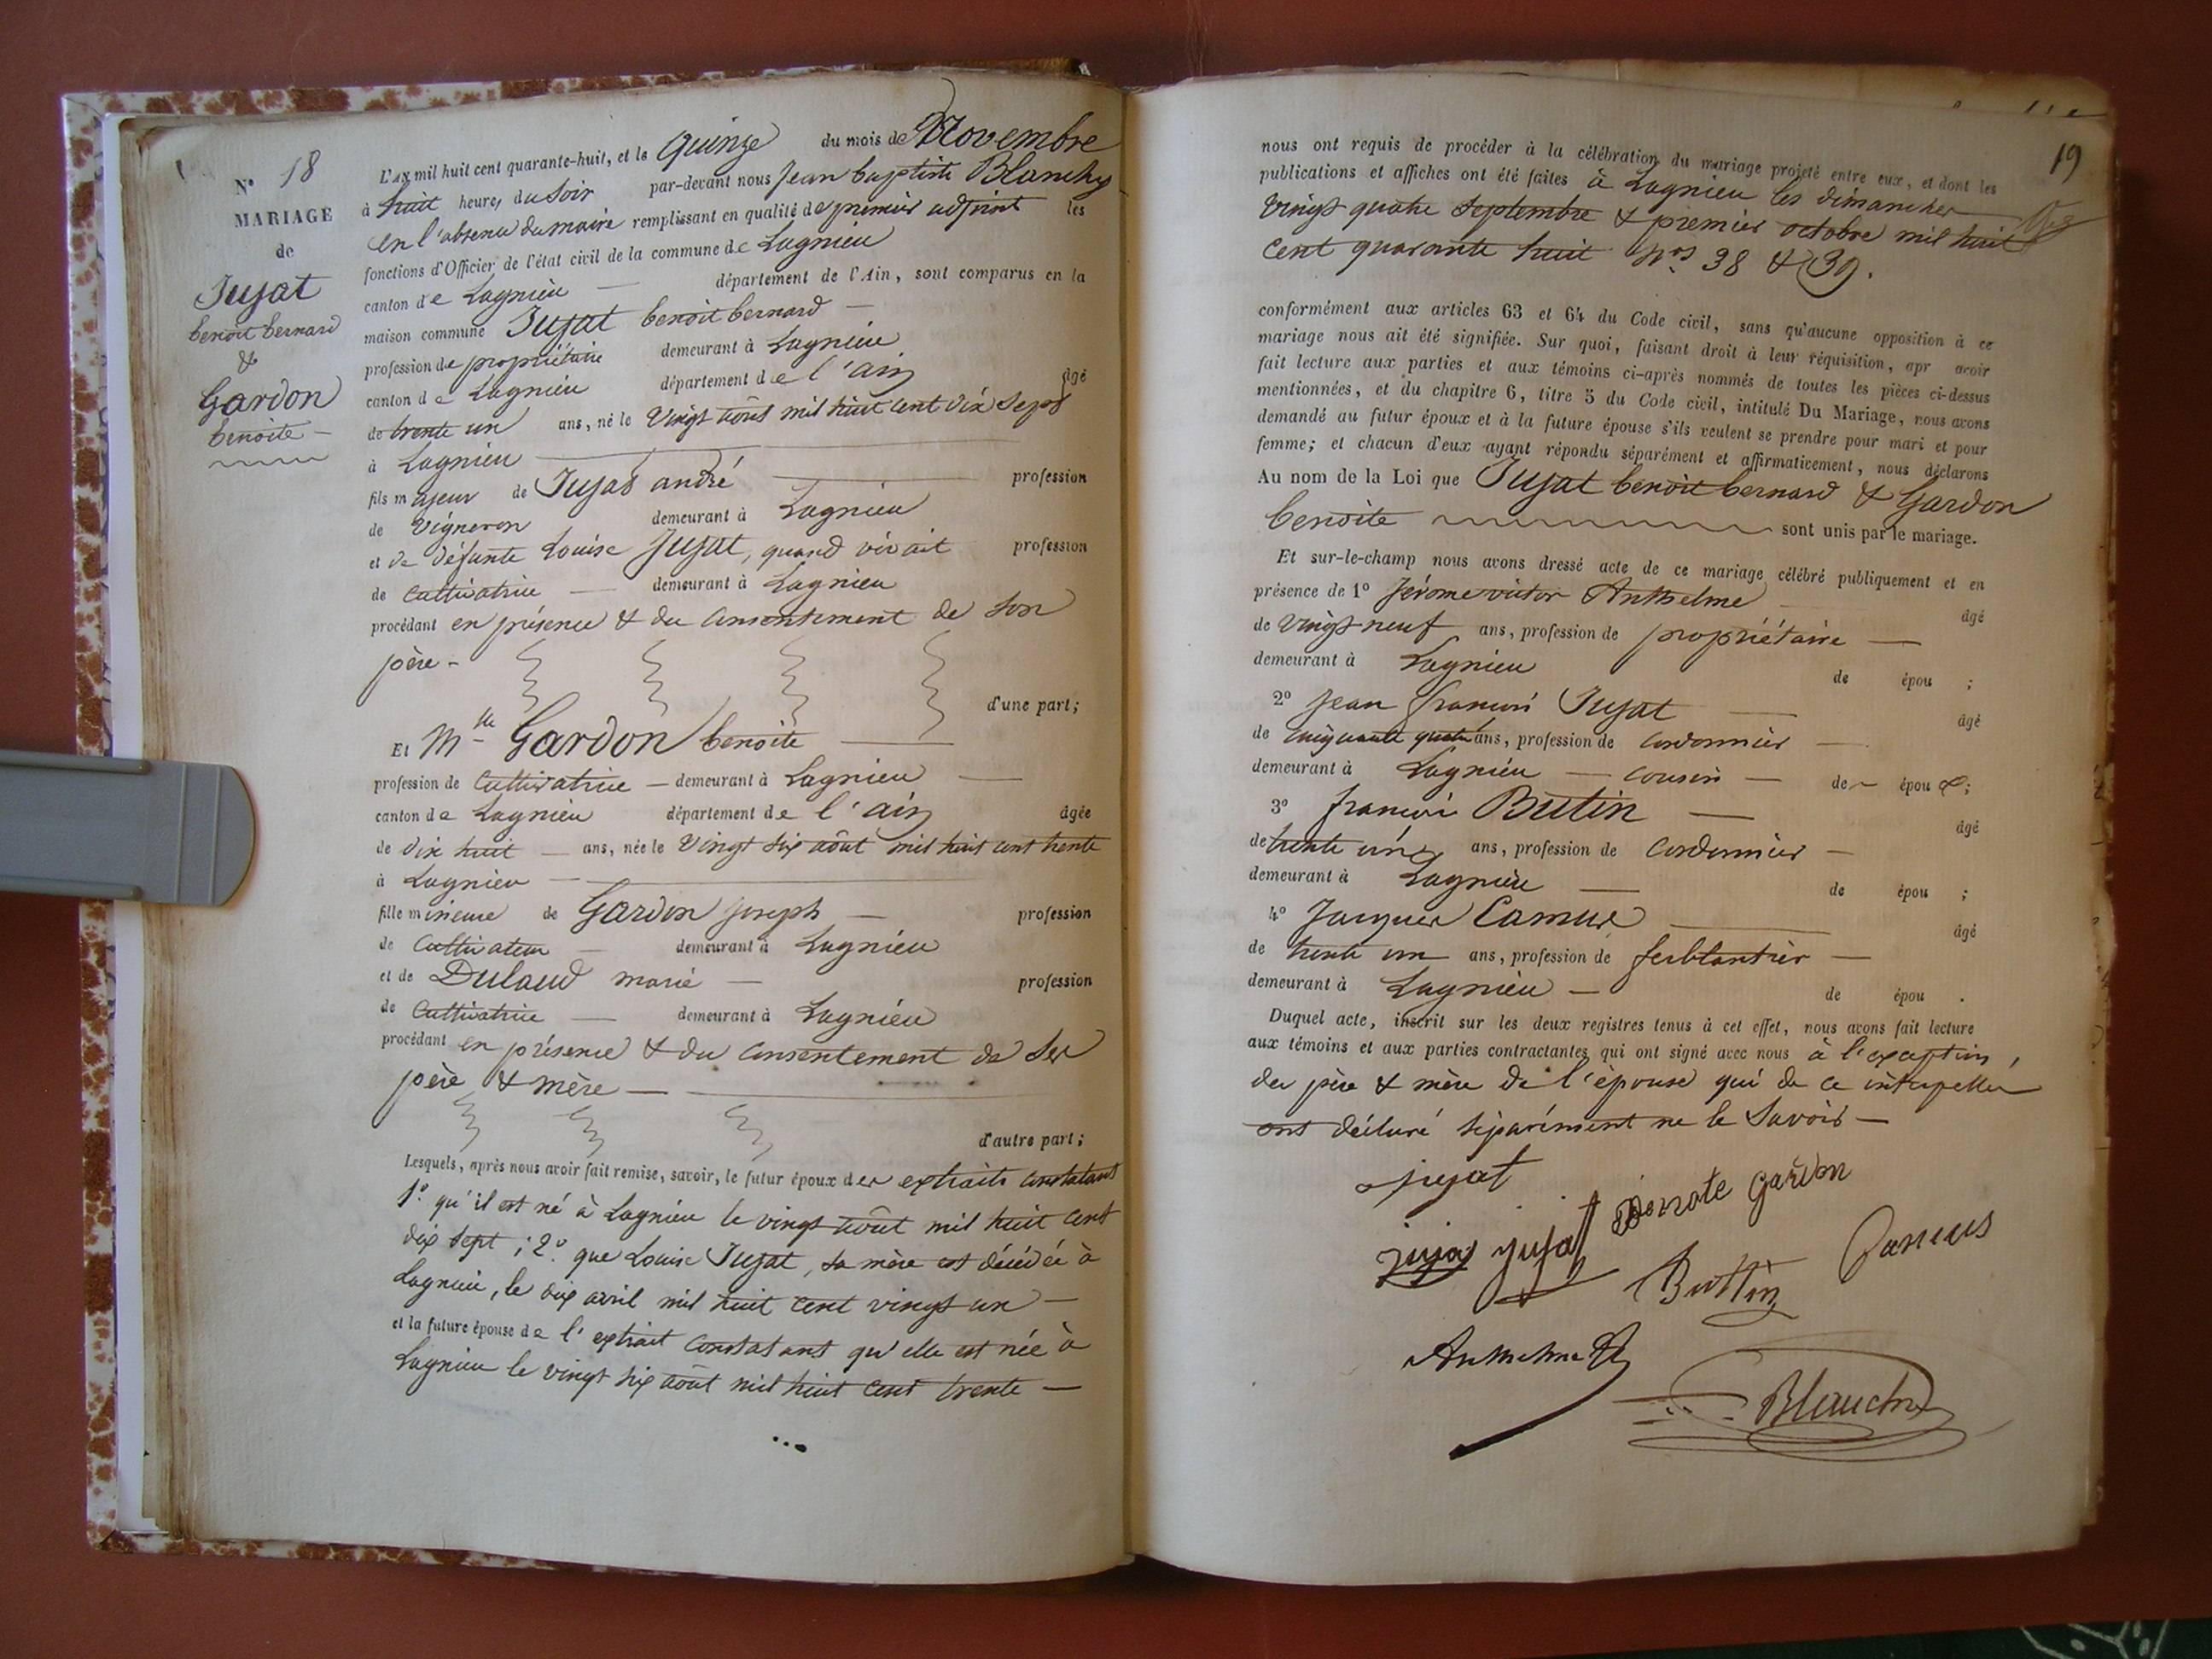 N° 18
MARIAGE
de
Jujat
benoit bernard
&
Gardon
benoite
L'AN mil huit cent quarante-huit, et le Quinze du mois de Novembre
à huit heures du Soir par-devant nous Jean baptiste Blanchy
en l'absence du maire remplissant en qualité de premier adjoint les
fonctions d'Officier de l'état civil de la commune de Lagnieu
canton de Lagnieu département de l'Ain, sont comparus en la
maison commune Jujat benoit bernard
profession de propriétaire demeurant à Lagnieu
canton de Lagnieu département de l'ain âgé
de trente un ans, né le Vingt août mil huit cent dix sept
à Lagnieu
fils majeur de Jujat andré profession
de Vigneron demeurant à Lagnieu
et de défunte Louise Jujat, quand vivait profession
de Cultivatrice demeurant à Lagnieu
procédant en présence & du Consentement de son
père
d'une part;
Et Mlle Gardon benoite
profession de Cultivatrice demeurant à Lagnieu
canton de Lagnieu département de l'ain âgée
de dix huit ans, née le Vingt six août mil huit cent trente
à Lagnieu
fille mineure de Gardon joseph profession
de Cultivateur demeurant à Lagnieu
et de Dulaud marie profession
de Cultivatrice demeurant à Lagnieu
procédant en présence & du Consentement de Ses
père & mère
d'autre part;
Lesquels, après nous avoir fait remise, savoir, le futur époux des extraits constatant
1° qu'il est né à Lagnieu le vingt août mil huit cent
dix sept; 2° que Louise Jujat, sa mère est décédée à
Lagnieu, le dix avril mil huit cent vingt un
et la future épouse de l'extrait constatant qu'elle est née à
Lagnieu le vingt six août mil huit cent trente
19
nous ont requis de procéder à la célébration du mariage projeté entre eux, et dont les
publications et affiches ont été faites à Lagnieu les dimanches
Vingt quatre Septembre & premier octobre mil huit
cent quarante huit Nos 38 & 39.
conformément aux articles 63 et 64 du Code civil, sans qu'aucune opposition à ce
mariage nous ait été signifiée. Sur quoi, faisant droit à leur réquisition, apr avoir
fait lecture aux parties et aux témoins ci-après nommés de toutes les pièces ci-dessus
mentionnées, et du chapitre 6, titre 5 du Code civil, intitulé Du Mariage, nous avons
demandé au futur époux et à la future épouse s'ils veulent se prendre pour mari et pour
femme; et chacun d'eux ayant répondu séparément et affirmativement, nous déclarons
Au nom de la Loi que Jujat benoit bernard & Gardon
benoite sont unis par le mariage.
Et sur-le-champ nous avons dressé acte de ce mariage célébré publiquement et en
présence de 1° Jérome victor Anthelme âgé
de Vingt neuf ans, profession de propriétaire
demeurant à Lagnieu de épou ;
2° Jean françois Jujat âgé
de Cinquante quatre ans, profession de Cordonnier
demeurant à Lagnieu cousin de épou x;
3° françois Butin âgé
de trente un ans, profession de Cordonnier
demeurant à Lagnieu de épou ;
4° Jacques Camus âgé
de trente un ans, profession de ferblantier
demeurant à Lagnieu de épou .
Duquel acte, inscrit sur les deux registres tenus à cet effet, nous avons fait lecture
aux témoins et aux parties contractantes qui ont signé avec nous à l'exception,
des père & mère de l'épouse qui de ce interpellés
ont déclaré séparément ne le Savoir
jujat
Benoite Gardon
jujat jujat
Camus
Buttin
Anthelme
Blanchy